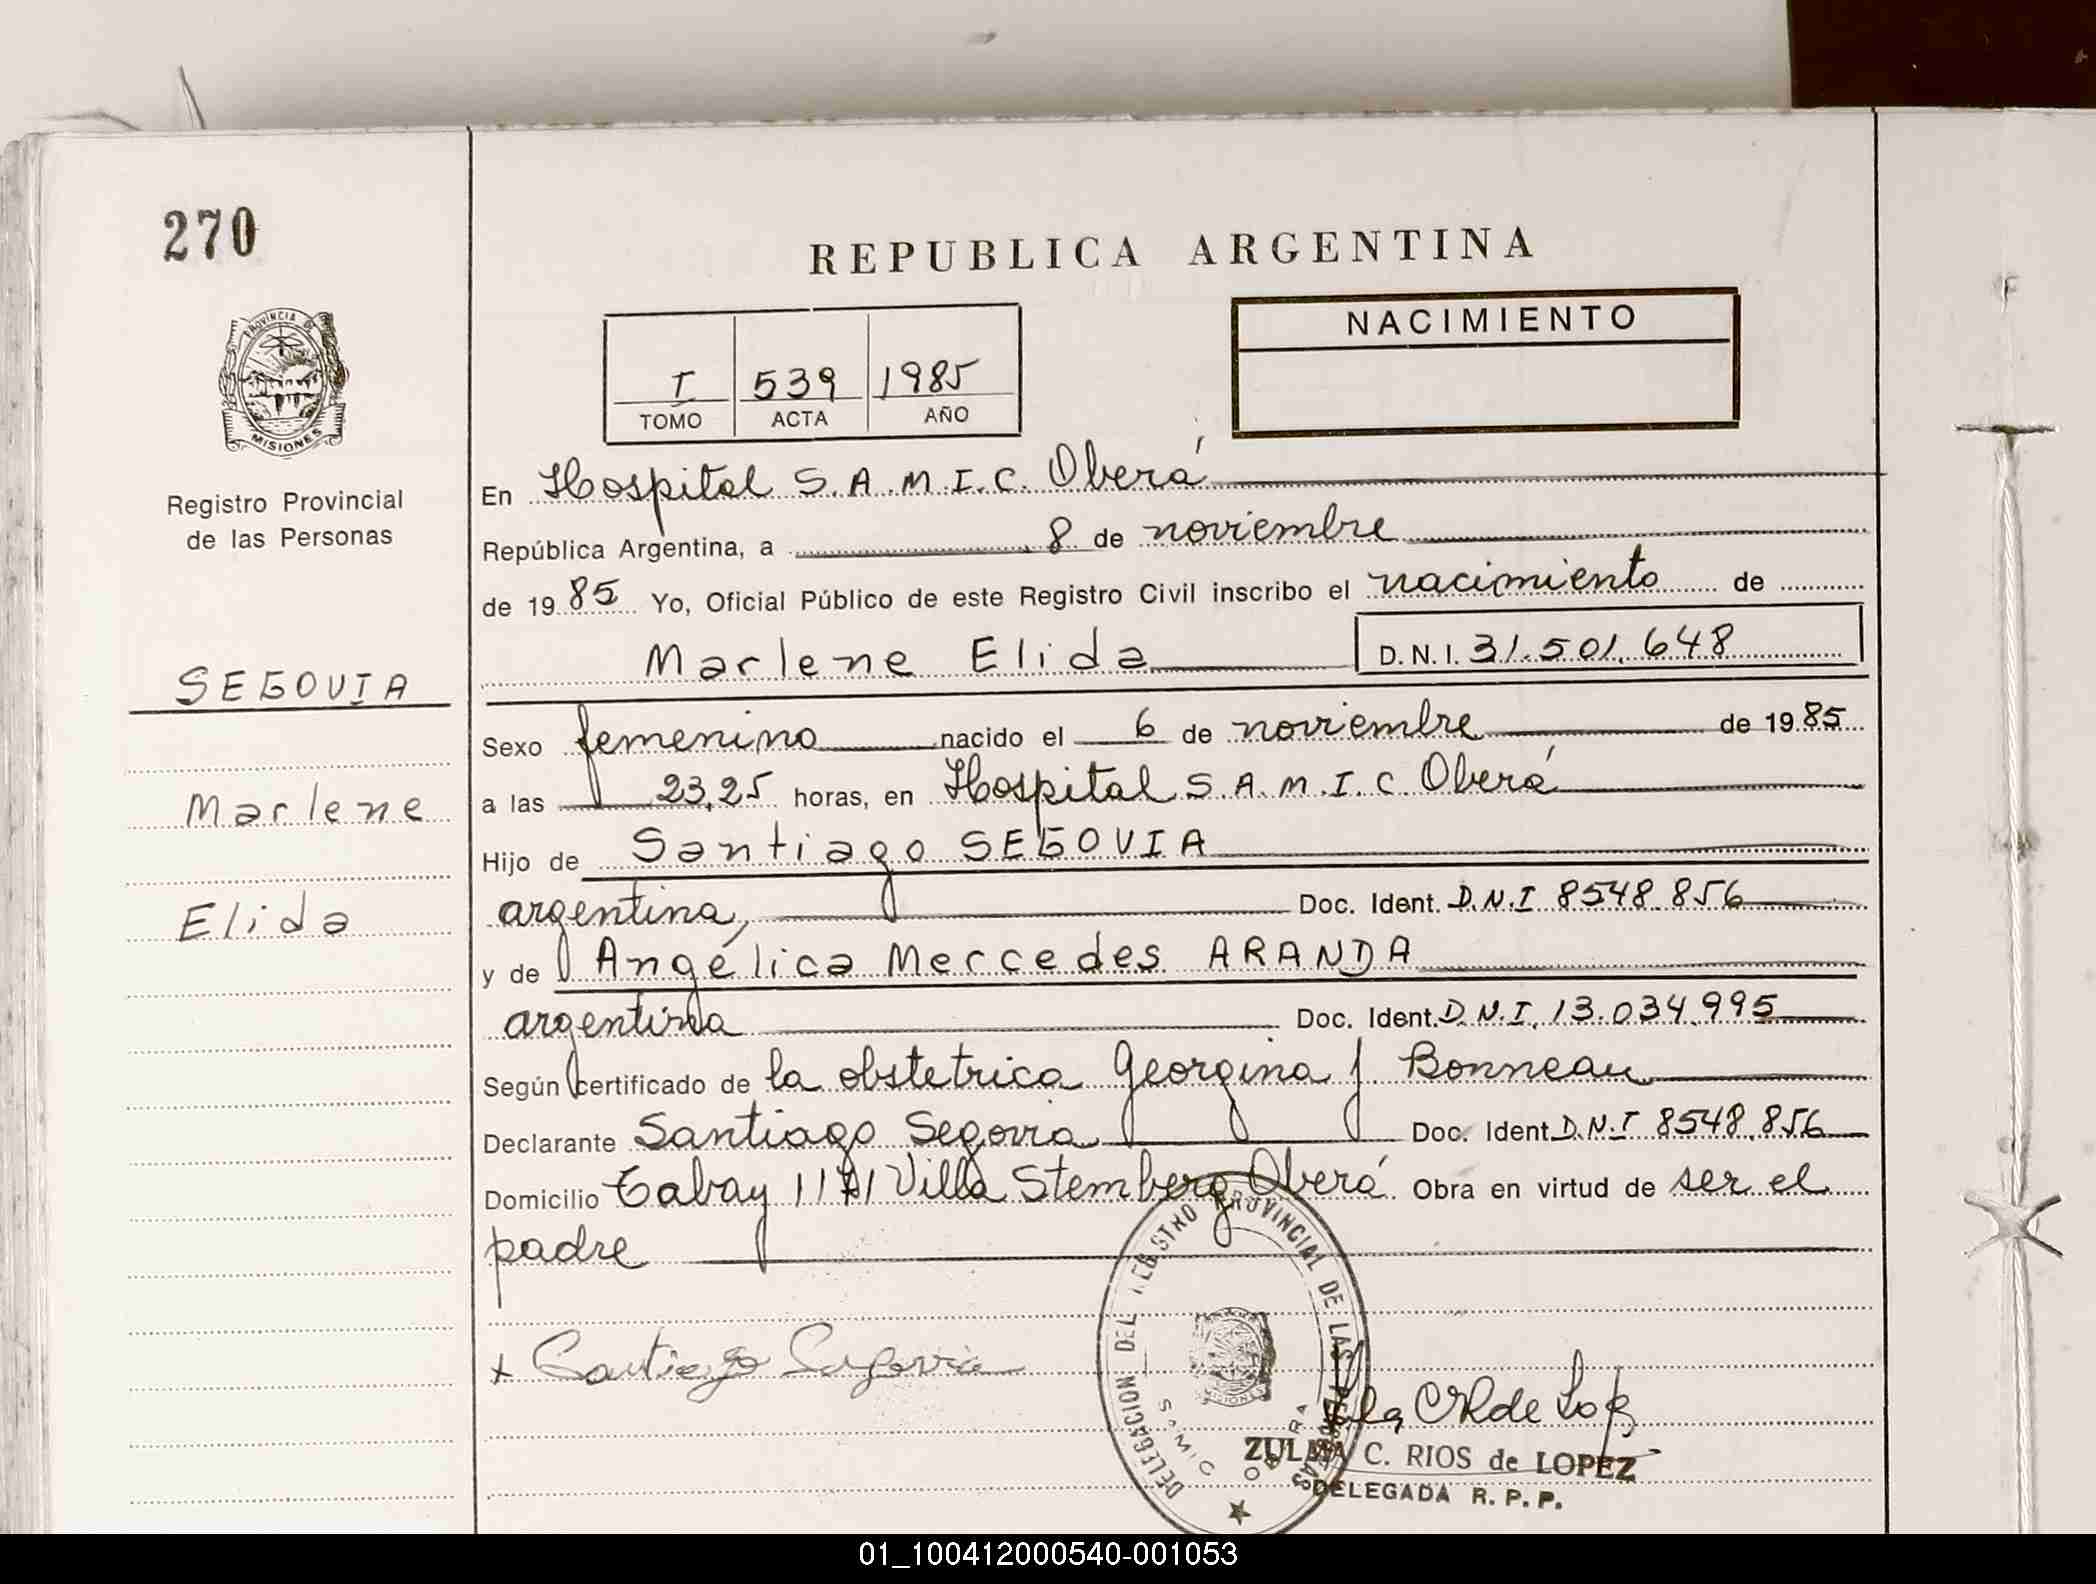 270
REPUBLICA ARGENTINA
PROVINCIA DE
MISIONES
Registro Provincial
de las Personas
I 539 1985
TOMO ACTA AÑO
NACIMIENTO
En Hospital S.A.M.I.C. Oberá
República Argentina, a 8 de noviembre
de 1985 Yo, Oficial Público de este Registro Civil inscribo el nacimiento de
Marlene Elida D.N.I. 31.501.648
SEGOVIA
Marlene
Elida
Sexo femenino nacido el 6 de noviembre de 1985
a las 23,25 horas, en Hospital S.A.M.I.C Oberá
Hijo de Santiago SEGOVIA
argentina, Doc. Ident. D.N.I 8548.856
y de Angélica Mercedes ARANDA
argentina Doc. Ident. D.N.I. 13.034.995
Según certificado de la obstetrica Georgina J. Bonneau
Declarante Santiago Segovia Doc. Ident D.N.I 8548.856
Domicilio Tabay Villa Stemberg Oberá. Obra en virtud de ser el
padre
+ Santiago Segovia
DELEGACION DEL REGISTRO PROVINCIAL DE LAS PERSONAS
SAMIC OBERA
MISIONES
ZULMA C. RIOS de LOPEZ
DELEGADA R.P.P.
01_100412000540-001053